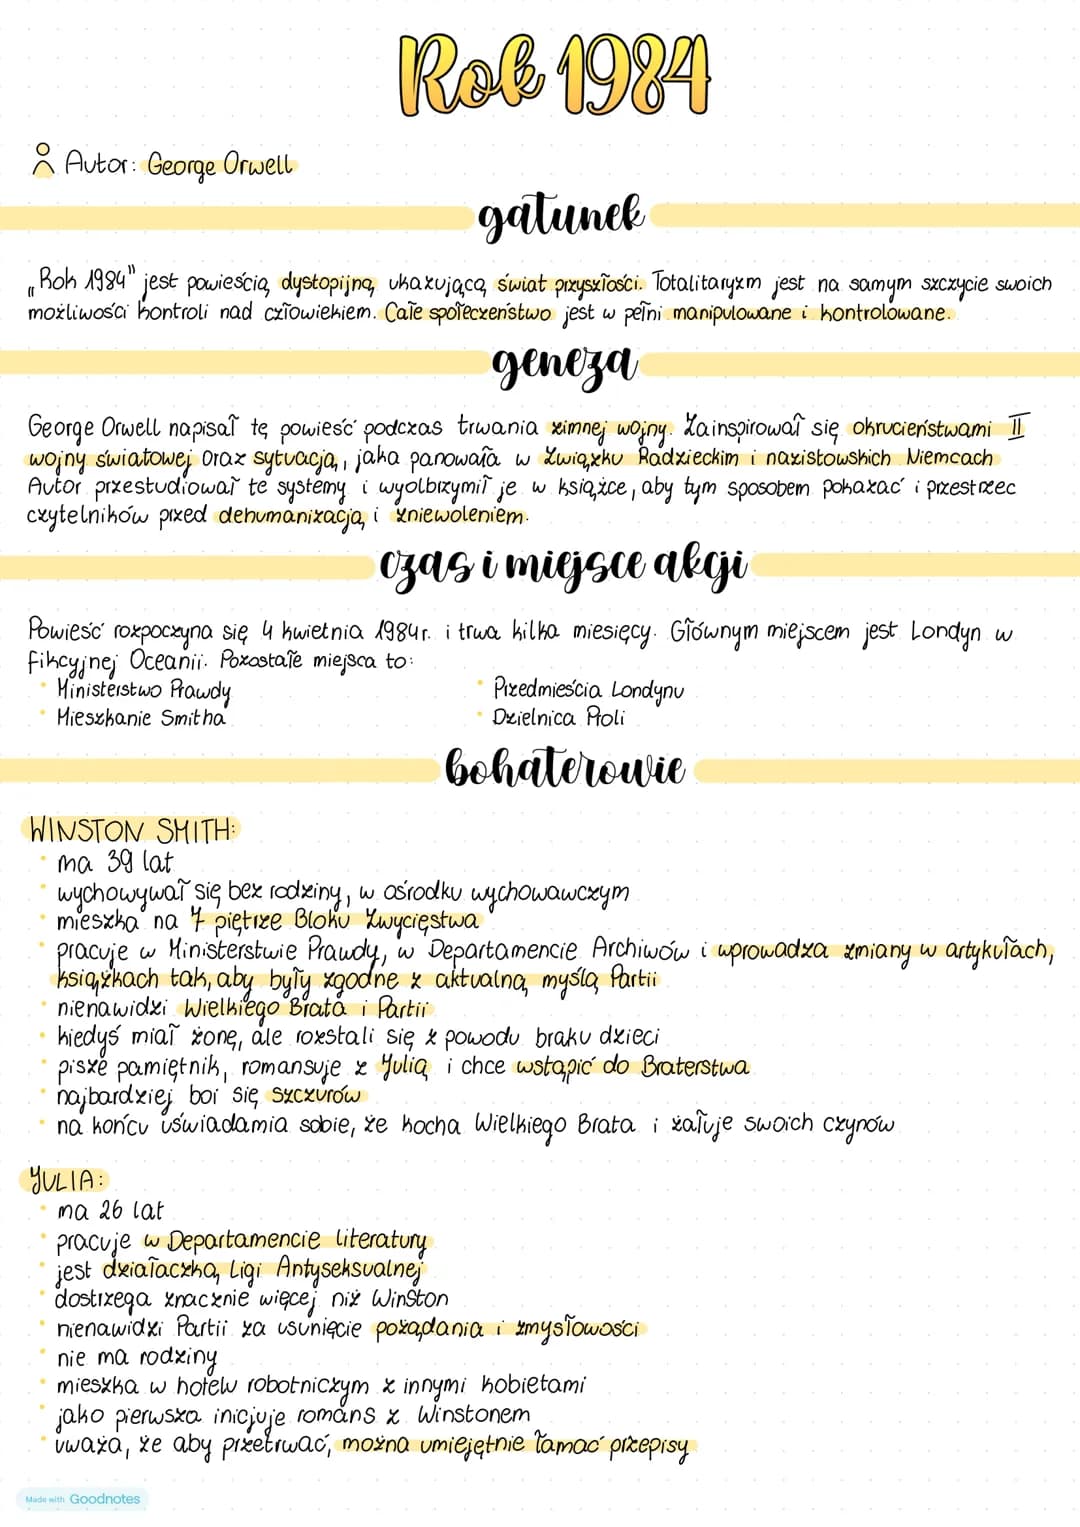 Rok 1984
Autor: George Orwell
gatunek
„Rok 1984" jest powieścią dystopijną ukazującą świat przyszłości. Totalitaryzm jest na samym szczycie swoich
możliwości kontroli nad człowiekiem. Całe społeczeństwo jest w pełni manipulowane i kontrolowane.
geneza
George Orwell napisał tę powieść podczas trwania zimnej wojny. Zainspirował się okrucieństwami II
wojny światowej oraz sytuacją, jaka panowała w Związku Radzieckim i nazistowskich Niemcach
Autor przestudiował te systemy i wyolbrzymił je w książce, aby tym sposobem pokazać i przestrzec
czytelników przed dehumanizacją i zniewoleniem.
czas i miejsce akcji
Powieść rozpoczyna się 4 kwietnia 1984r. i trwa kilka miesięcy. Głównym miejscem jest Londyn w
fikcyjnej Oceanii. Pozostałe miejsca to:
• Ministerstwo Prawdy
• Mieszkanie Smitha
• Przedmieścia Londynu
• Dzielnica Proli
bohaterowie
WINSTON SMITH:
• ma 39 lat
• wychowywał się bez rodziny, w ośrodku wychowawczym
• mieszka na 7 piętrze Bloku Zwycięstwa
• pracuje w Ministerstwie Prawdy, w Departamencie Archiwów i wprowadza zmiany w artykułach,
książkach tak, aby były zgodne z aktualną myślą Partii
• nienawidzi Wielkiego Brata i Partii
• kiedyś miał żonę, ale rozstali się z powodu braku dzieci
• pisze pamiętnik, romansuje z Julią i chce wstąpić do Braterstwa
• najbardziej boi się szczurów
• na końcu uświadamia sobie, że kocha Wielkiego Brata i żałuje swoich czynów
JULIA:
• ma 26 lat
• pracuje w Departamencie literatury
• jest działaczką Ligi Antyseksualnej
• dostrzega znacznie więcej niż Winston
• nienawidzi Partii za usunięcie pożądania i zmysłowości
• nie ma rodziny
• mieszka w hotelu robotniczym z innymi kobietami
• jako pierwsza inicjuje romans z Winstonem
• uważa, że aby przetrwać, można umiejętnie łamać przepisy
Made with Goodnotes